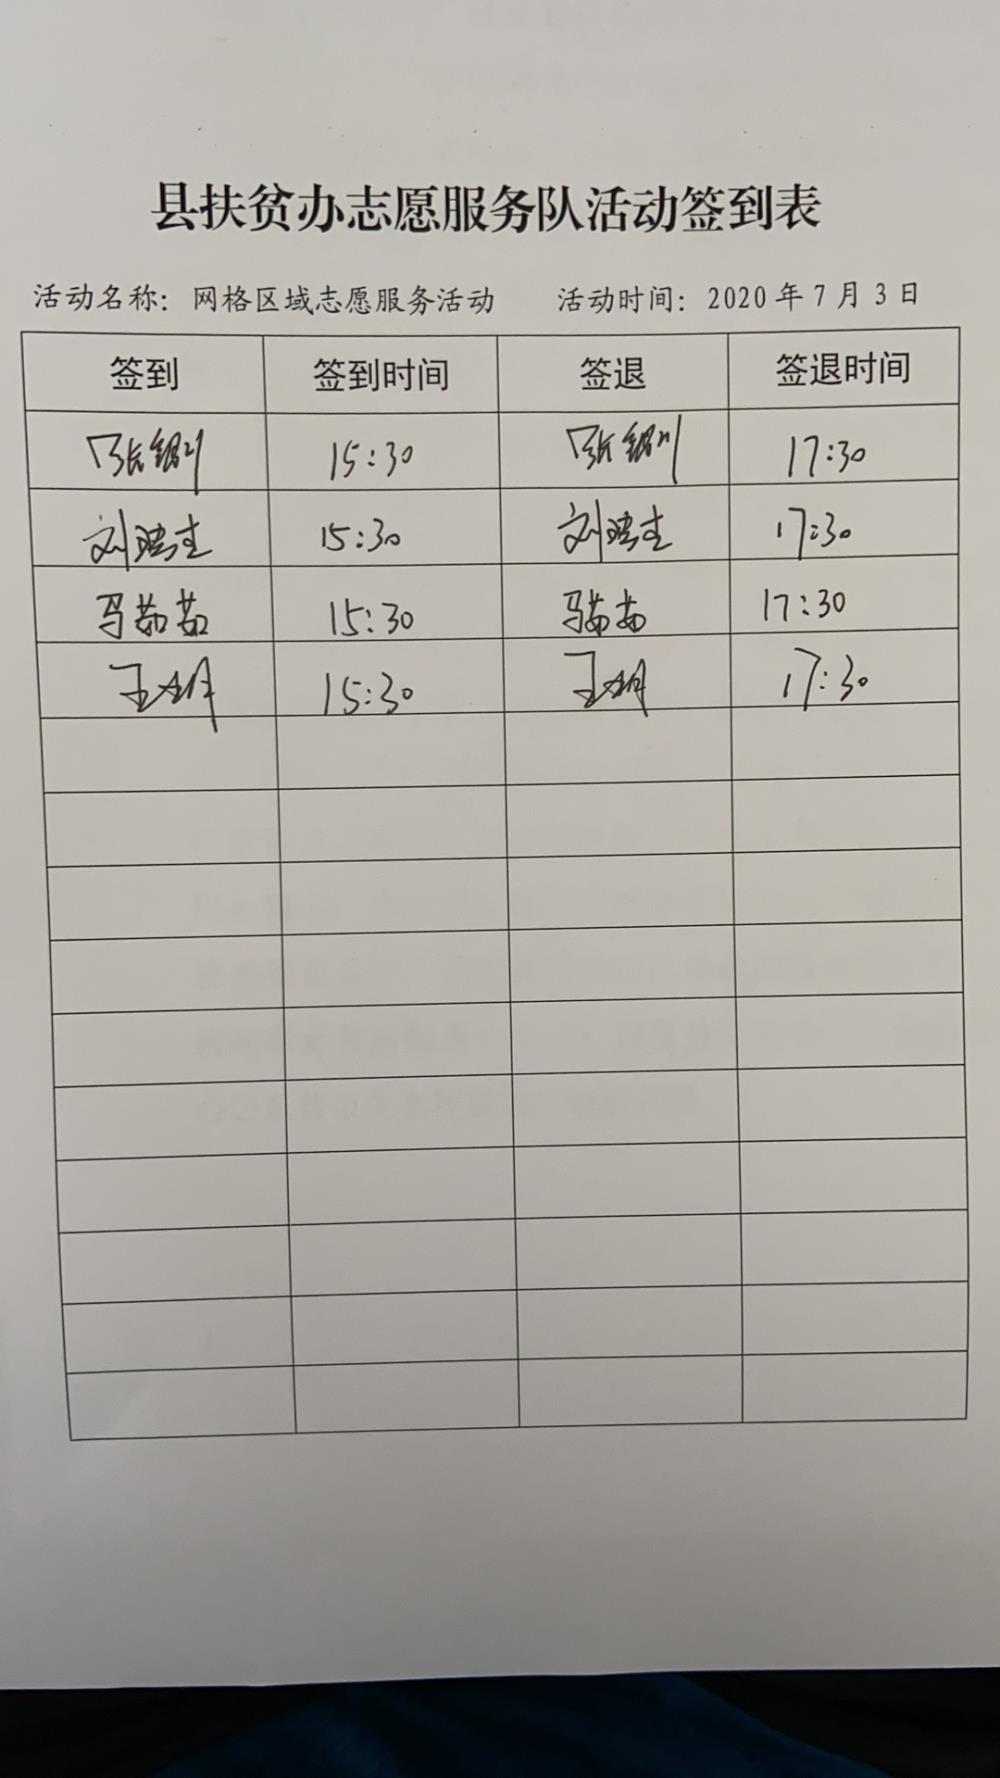 县扶贫办志愿服务队活动签到表
活动名称：网格区域志愿服务活动 活动时间：2020年7月3日
签到 签到时间 签退 签退时间
张 15:30 张 17:30
刘 15:30 刘 17:30
马茹茹 15:30 马茹茹 17:30
王 15:30 王 17:30